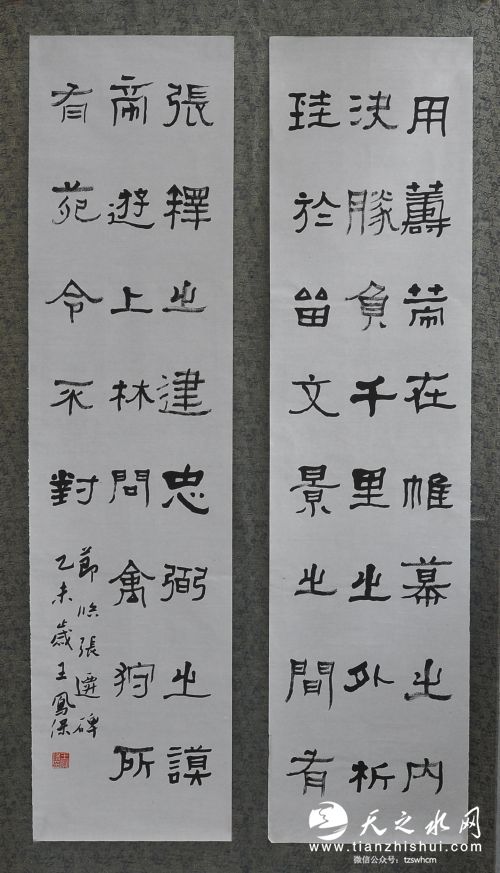 用籌策在帷幕之内
決勝負千里之外析
珪於留文景之間有
張釋之建忠弼之謨
帝遊上林問禽狩所
有苑令不對
節临張遷碑
乙未歲王鳳保
天之水网
www.tianzhishui.com
微信公众号：tzswhcm